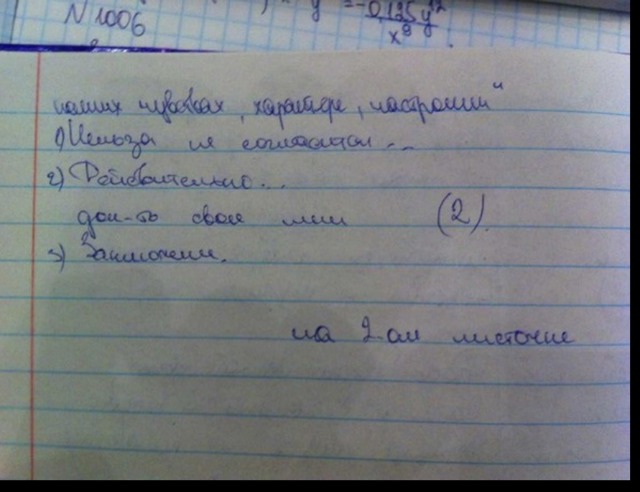 N 1006
y = -0,125y¹² / x⁹
наших чувствах, характере, настроении"
1) Нельзя не согласиться...
2) Действительно...
док-ть свое мнение (2).
3) Заключение.
на 2-ом листочке